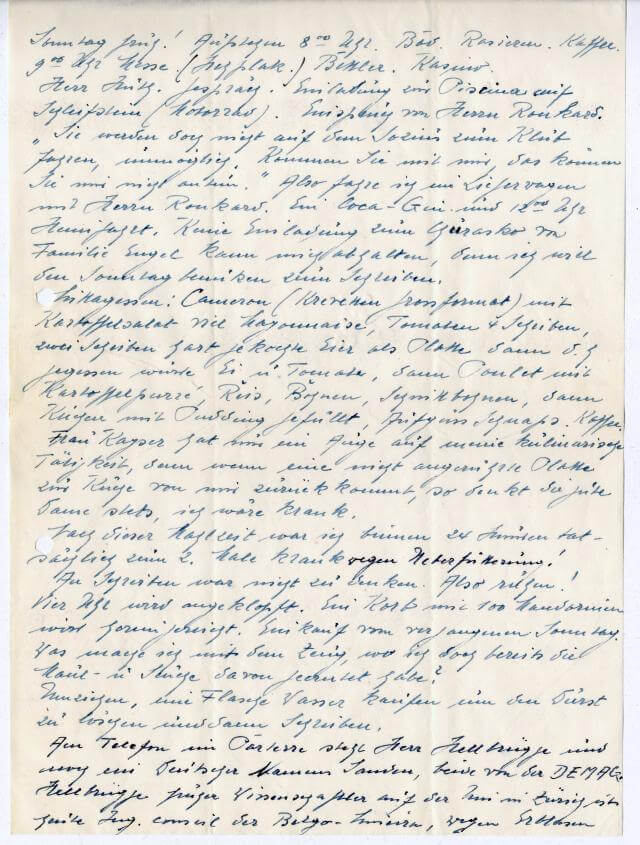 Sonntag früh! Aufstehen 8⁰⁰ Uhr. Bad. Rasieren. Kaffee.
9⁰⁰ Uhr Messe ( ) Bettler. Kasino.
Herr Fritz. Gespräch. Einladung zur Piscina auf
Schleifstein (Motorrad). Einspruch von Herrn Ronkard.
"Sie werden doch nicht auf dem Sozius zum Klub
fahren, unmöglich. Kommen Sie mit mir, das können
Sie mir nicht antun." Also fahre ich im Lieferwagen
mit Herrn Ronkard. Ein Coca-Gin und 12⁰⁰ Uhr
Heimfahrt. Keine Einladung zum Churasko von
Familie Engel kann mich abhalten, denn ich will
den Sonntag benützen zum Schreiben.
Mittagessen: Cameron (Krevetten Grossformat) mit
Kartoffelsalat viel Mayonnaise, Tomaten 4 Scheiben,
zwei Scheiben hart gekochte Eier als Platte dann d.h
gegessen wurde Ei u. Tomate, dann Poulet mit
Kartoffelpurré, Reis, Bohnen, Schnittbohnen, dann
Kuchen mit Pudding gefüllt, Aufguss Schnaps. Kaffee.
Frau Kayser hat nur ein Auge auf meine kulinarische
Tätigkeit, denn wenn eine nicht angerührte Platte
zur Küche von mir zurück kommt, so denkt die gute
Dame stets, ich wäre krank.
Nach dieser Mahlzeit war ich binnen 24 Stunden tat-
sächlich zum 2. Male krank wegen Ueberfütterung!
An Schreiben war nicht zu denken. Also ruhen!
Vier Uhr wird angeklopft. Ein Korb mit 100 Mandarinen
wird hereingereicht. Einkauf vom vergangenen Sonntag.
Was mache ich mit dem Zeug, wo ich doch bereits die
Maul- u Seuche davon geerntet habe?
Umziehen, eine Flasche Wasser kaufen um den Durst
zu löschen und dann Schreiben.
Am Telefon im Parterre steht Herr Hellbrügge und
noch ein Deutscher Namens Sanden, beide von der DEMAG.
Hellbrügge früher Wissenschaftler auf der Uni in Zürich ist
heute Ing. conseil der Belgo-Mineira, wegen Erblasen